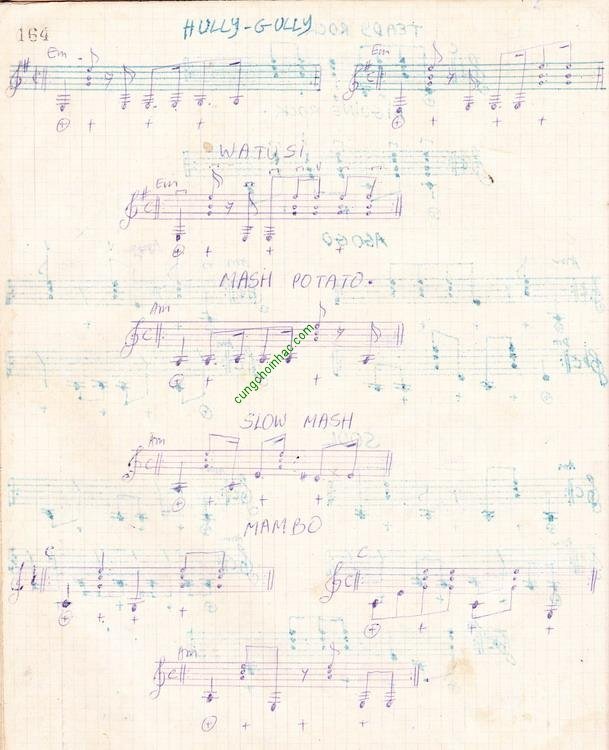 164
HULLY-GULLY
Em
Em
WATUSI
Em
MASH POTATO.
Am
cungchoinhac.com
SLOW MASH
Am
MAMBO
C
C
Am